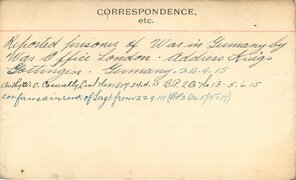 CORRESPONDENCE,
etc.
Reported prisoner of War in Germany by
War Office London. Address Kriegs
Gottingen. Germany. 24.4.15
W.O. Casualty List No 1517-24.4.15 B.P. 20 No 13-5.6.15
confirms in rank of Sergt from 22.9.14